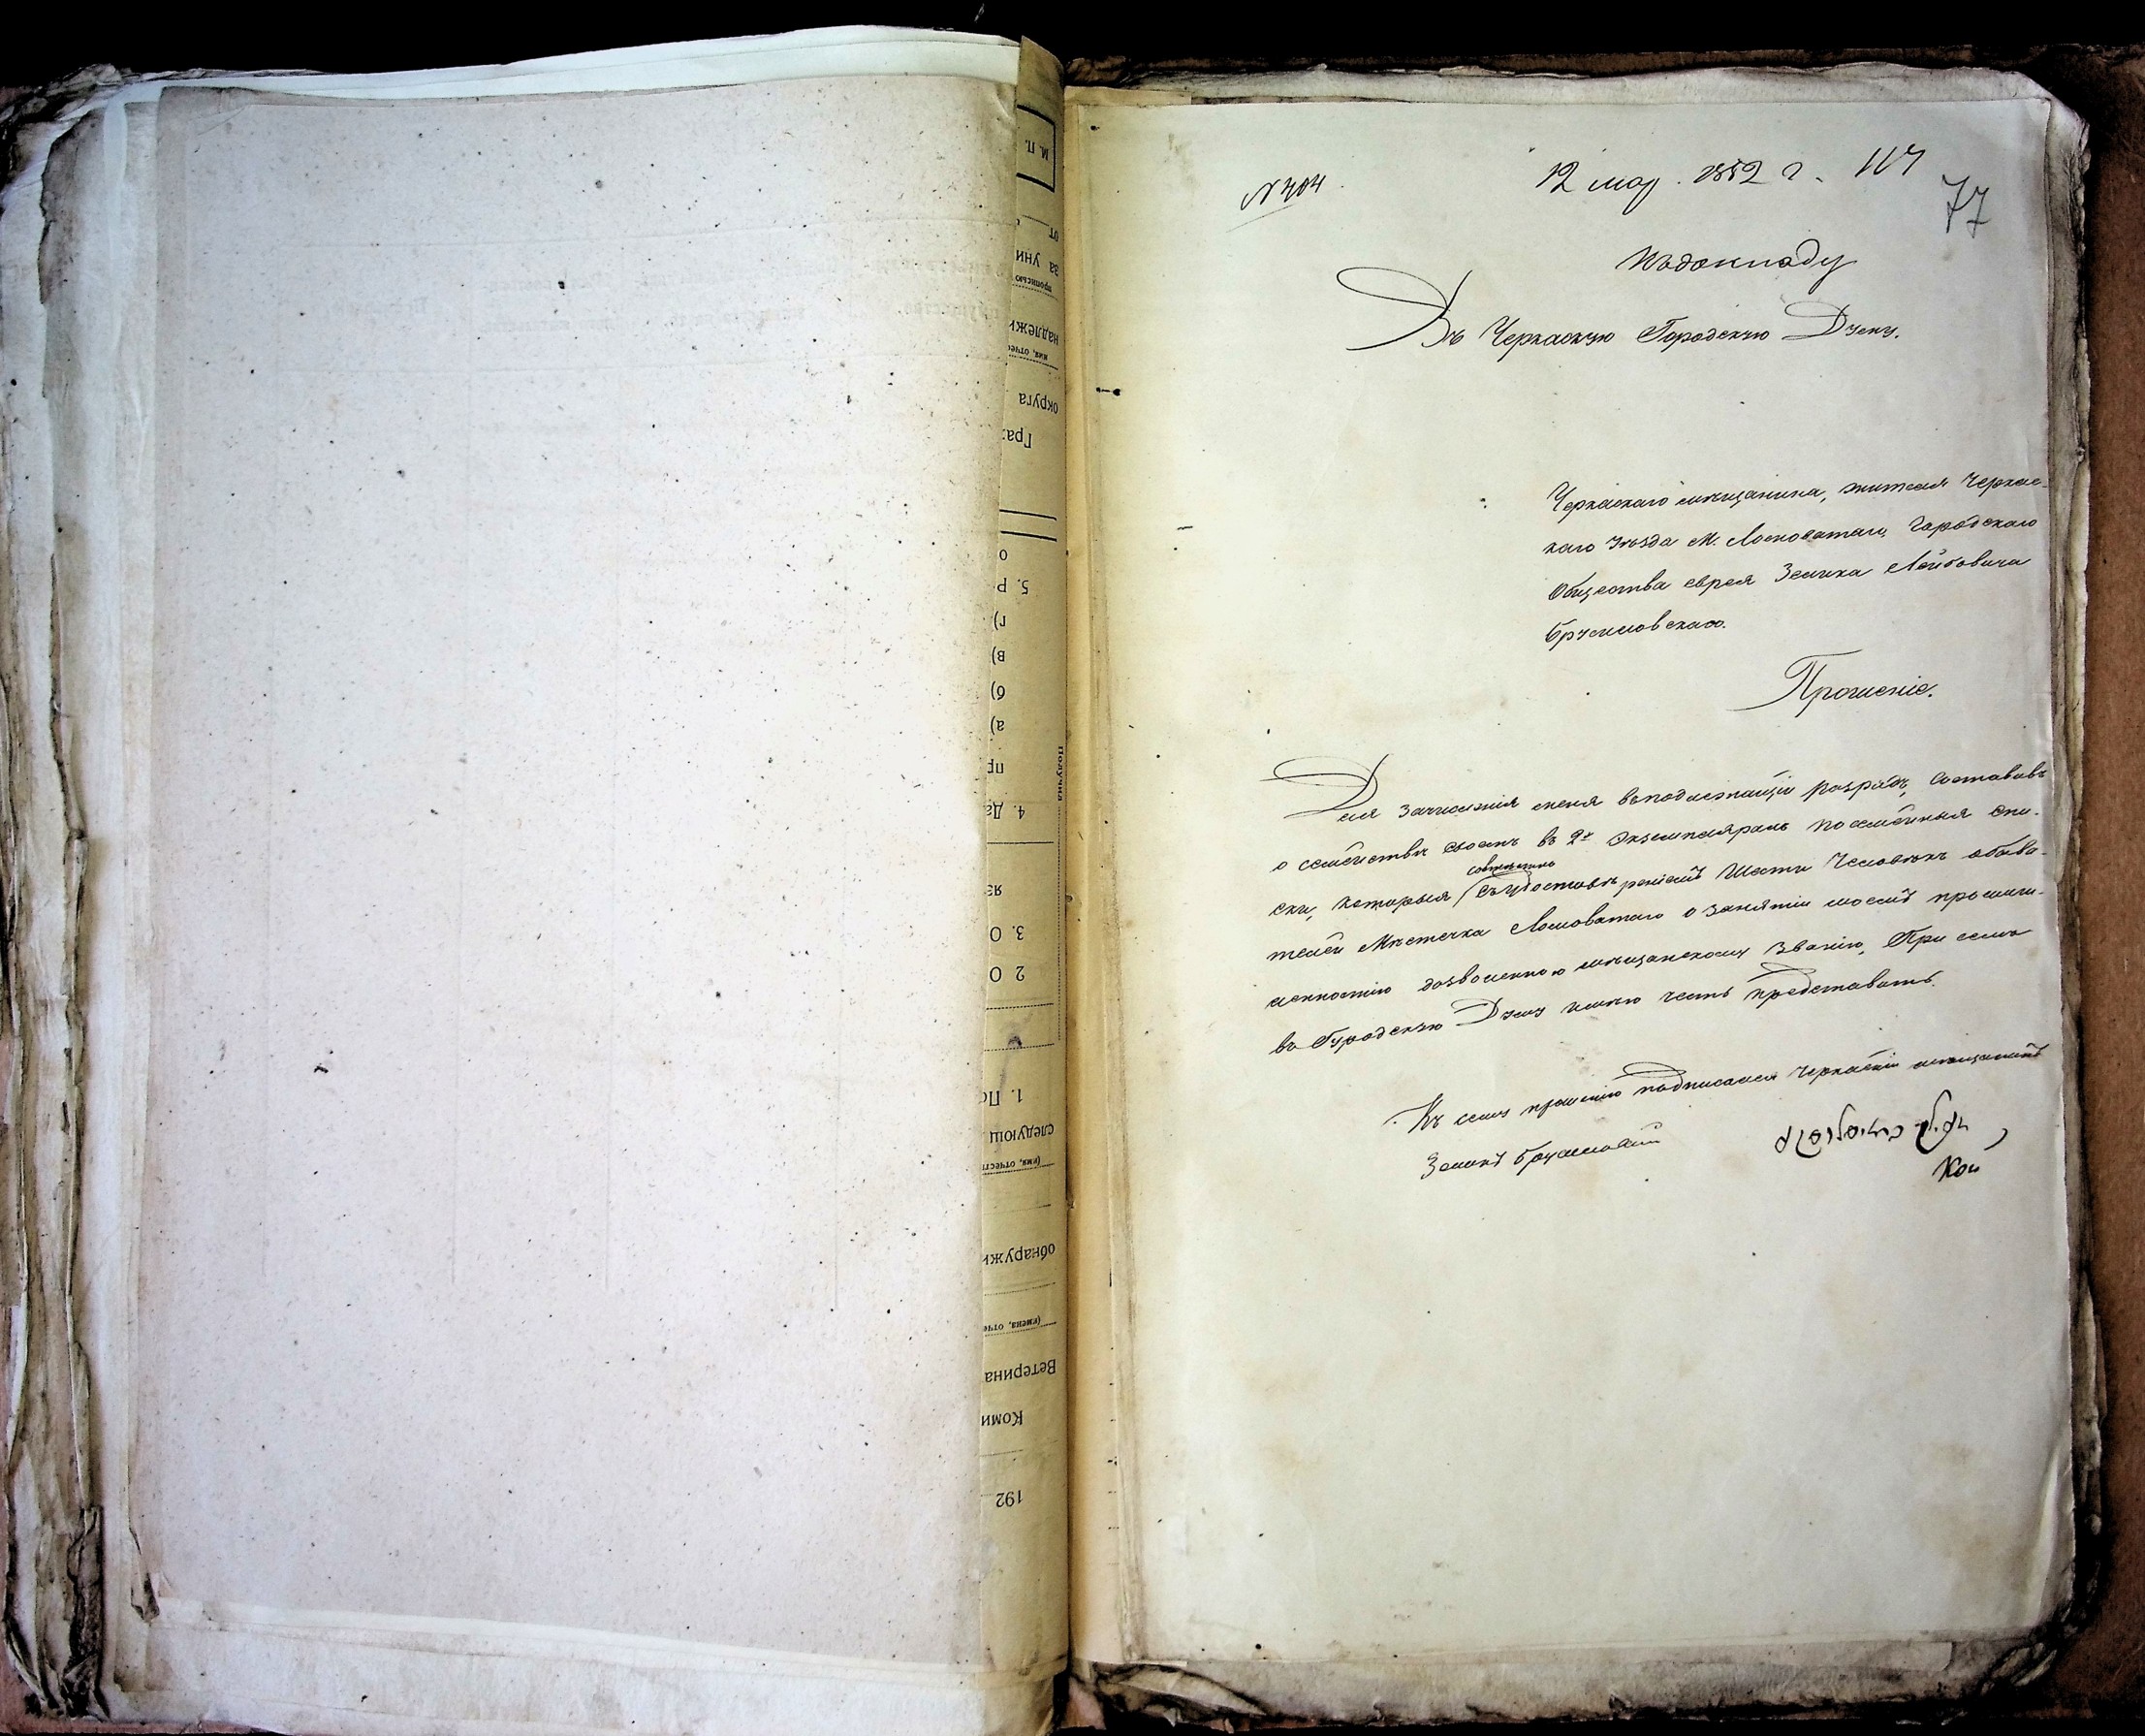 М. П.
от
за уни
прописью
надлежи
имя, отчес
округа
Граж
о
5. Р
г)
в)
б)
а)
пр
4. Да
яз
3. О
2 О
1. По
следующ
(имя, отчеств
обнаружи
(имена, отче
Ветерина
Коми
192
Получил
№ 404
12 мар. 1852 г. 117
77
Къ докладу
Въ Черкаскую Городскую Думу.
Черкаскаго мещанина, жителя Черкас-
каго уезда М. Ломоватаго, Городскаго
Общества еврея Зелика Лейбовича
Бруcиловскаго.
Прошеніе.
Для зачисленія меня въ подлежащій разрядъ, составивъ
о семействе своемъ въ 2х экземплярахъ посемейныя спи-
ски, которыя съ удостовѣреніемъ шести человѣкъ обыва-
телей Мѣстечка Ломоватаго о занятіи моемъ промыш-
ленностію дозволенною мѣщанскому званію, При семъ
въ Городскую Думу имѣю честь представить.
Къ сему прошенію подписался Черкаскій мещанинъ
Зеликъ Брусиловскій